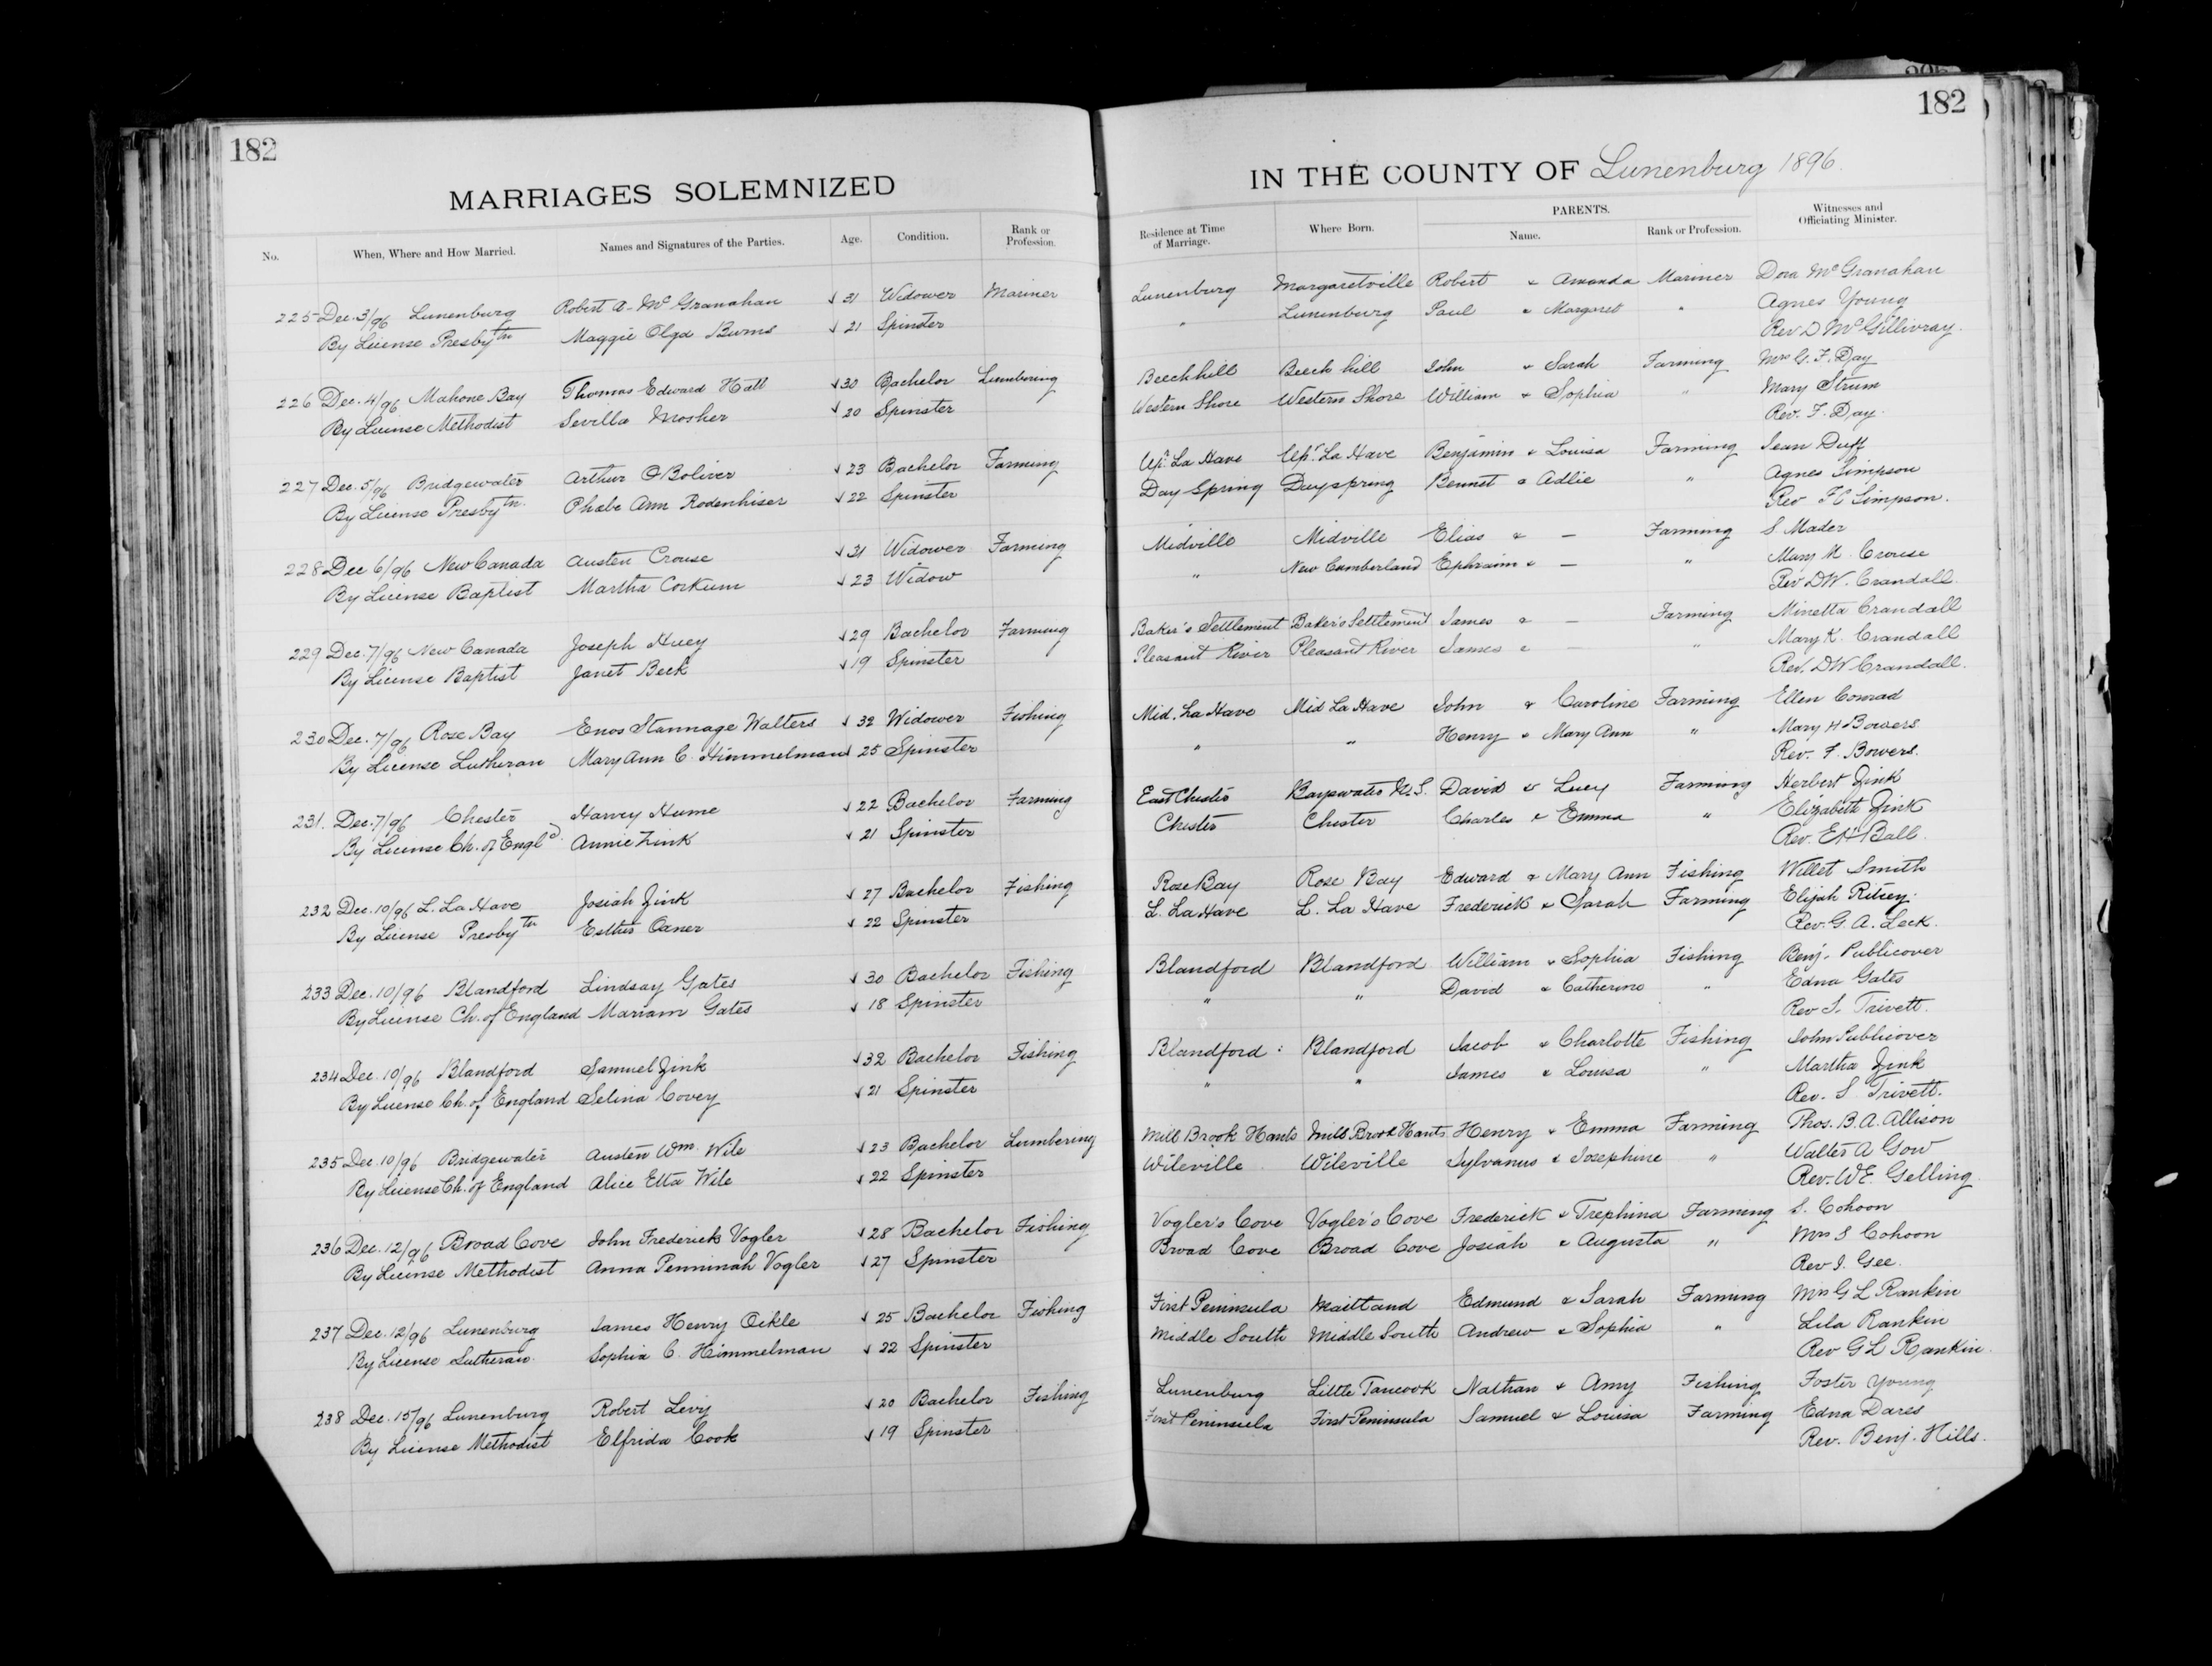 182
182
MARRIAGES SOLEMNIZED
IN THE COUNTY OF Lunenburg 1896.
No. When, Where and How Married. Names and Signatures of the Parties. Age. Condition. Rank or Profession. Residence at Time of Marriage. Where Born. PARENTS. Name. Rank or Profession. Witnesses and Officiating Minister.
225 Dec. 3/96 Lunenburg Robert A. McGranahan 31 Widower Mariner Lunenburg Margaretville Robert & Amanda Mariner Dora McGranahan
By License Presbytn Maggie Olga Burns 21 Spinster " Lunenburg Paul & Margaret " Agnes Young
Rev D McGillivray.
226 Dec. 4/96 Mahone Bay Thomas Edward Hatt 30 Bachelor Lumbering Beech hill Beech hill John & Sarah Farming Mrs G. F. Day
By License Methodist Sevilla Mosher 20 Spinster Western Shore Western Shore William & Sophia " Mary Strum
Rev. F. Day.
227 Dec. 5/96 Bridgewater Arthur O Boliver 23 Bachelor Farming Upr. La Have Upr. La Have Benjamin & Louisa Farming Jean Duff
By License Presbytn. Phebe Ann Rodenhiser 22 Spinster Day Spring Dayspring Bennet & Adlie " Agnes Simpson
Rev F C Simpson.
228 Dec 6/96 New Canada Austen Crouse 31 Widower Farming Midville Midville Elias & — Farming S Mader
By License Baptist Martha Corkum 23 Widow " New Cumberland Ephraim & — " Mary M. Crouse
Rev D W. Crandall.
229 Dec. 7/96 New Canada Joseph Huey 29 Bachelor Farming Baker's Settlement Baker's Settlement James & — Farming Minetta Crandall
By License Baptist Janet Beck 19 Spinster Pleasant River Pleasant River James & — " Mary K. Crandall
Rev. D W Crandall.
230 Dec. 7/96 Rose Bay Enos Stannage Walters 32 Widower Fishing Mid. La Have Mid La Have John & Caroline Farming Ellen Conrad
By License Lutheran Mary Ann C. Himmelman 25 Spinster " " Henry & Mary Ann " Mary H Bowers
Rev. F. Bowers.
231. Dec. 7/96 Chester Harvey Hume 22 Bachelor Farming East Chester Bayswater N.S. David & Lucy Farming Herbert Zink
By License Ch. of Engld. Annie Zink 21 Spinster Chester Chester Charles & Emma " Elizabeth Zink
Rev. E H Ball.
232 Dec. 10/96 L. La Have Josiah Zink 27 Bachelor Fishing Rose Bay Rose Bay Edward & Mary Ann Fishing Willet Smith
By License Presbytn Esther Oxner 22 Spinster L. La Have L. La Have Frederick & Sarah Farming Elijah Ritcey.
Rev. G. A. Leck.
233 Dec. 10/96 Blandford Lindsay Gates 30 Bachelor Fishing Blandford Blandford William & Sophia Fishing Benj. Publicover
By License Ch. of England Mariam Gates 18 Spinster " " David & Catherine " Edna Gates
Rev S. Trivett.
234 Dec. 10/96 Blandford Samuel Zink 32 Bachelor Fishing Blandford: Blandford Jacob & Charlotte Fishing John Publicover
By License Ch. of England Selina Covey 21 Spinster " " James & Louisa " Martha Zink
Rev. S. Trivett.
235 Dec. 10/96 Bridgewater Austen Wm. Wile 23 Bachelor Lumbering Mill Brook Hants Mill Brook Hants Henry & Emma Farming Thos. B. A. Allison
By License Ch. of England Alice Etta Wile 22 Spinster Wileville Wileville Sylvanus & Josephine " Walter A Gow
Rev. W E. Gelling.
236 Dec. 12/96 Broad Cove John Frederick Vogler 28 Bachelor Fishing Vogler's Cove Vogler's Cove Frederick & Trephina Farming S. Cohoon
By License Methodist Anna Penninah Vogler 27 Spinster Broad Cove Broad Cove Josiah & Augusta " Mrs S Cohoon
Rev I. Gee.
237 Dec. 12/96 Lunenburg James Henry Oikle 25 Bachelor Fishing First Peninsula Maitland Edmund & Sarah Farming Mrs G L Rankin
By License Lutheran. Sophia C. Himmelman 22 Spinster Middle South Middle South Andrew & Sophia " Lila Rankin
Rev G L Rankin.
238 Dec. 15/96 Lunenburg Robert Levy 20 Bachelor Fishing Lunenburg Little Tancook Nathan & Amy Fishing Foster Young
By License Methodist Elfrida Cook 19 Spinster First Peninsula First Peninsula Samuel & Louisa Farming Edna Dares
Rev. Benj. Hills.